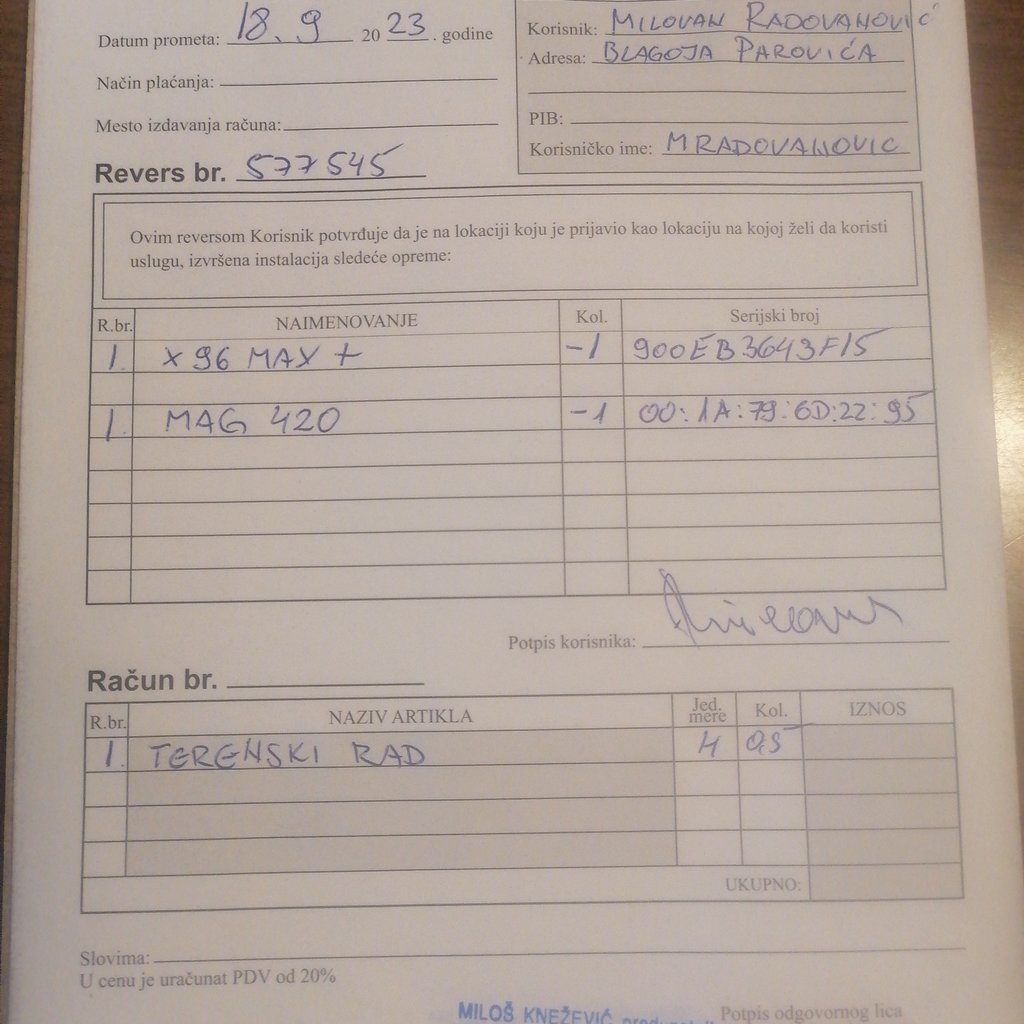 Datum prometa: 18. 9 20 23. godine
Način plaćanja:
Mesto izdavanja računa:
Korisnik: MILOVAN RADOVANOVIĆ
Adresa: BLAGOJA PAROVIĆA
PIB:
Korisničko ime: MRADOVANOVIC
Revers br. 577545
Ovim reversom Korisnik potvrđuje da je na lokaciji koju je prijavio kao lokaciju na kojoj želi da koristi
uslugu, izvršena instalacija sledeće opreme:
R.br. NAIMENOVANJE Kol. Serijski broj
1. X96 MAX + -1 900EB3643F15
1. MAG 420 -1 00:1A:79:6D:22:95
Potpis korisnika:
Račun br.
R.br. NAZIV ARTIKLA Jed. mere Kol. IZNOS
1. TERENSKI RAD H 0,5
UKUPNO:
Slovima:
U cenu je uračunat PDV od 20%
MILOŠ KNEŽEVIĆ Potpis odgovornog lica